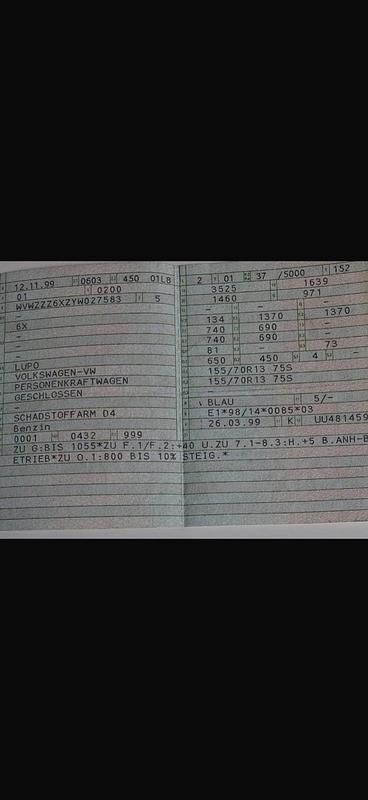 12.11.99 0603 450 01L8
01 0200
WVWZZZ6XZYW027583 5
–
6X
–
–
–
LUPO
VOLKSWAGEN-VW
PERSONENKRAFTWAGEN
GESCHLOSSEN
–
SCHADSTOFFARM D4
Benzin
0001 0432 999
2 01 37 /5000 152
3525 1639
1460 971
– – –
134 1370 1370
740 690 –
740 690 –
81 – 73
650 450 4 –
155/70R13 75S
155/70R13 75S
–
BLAU 5/–
E1*98/14*0085*03
26.03.99 K UU481459
ZU G:BIS 1055*ZU F.1/F.2:+40 U.ZU 7.1-8.3:H.+5 B.ANH-B
ETRIEB*ZU O.1:800 BIS 10% STEIG.*